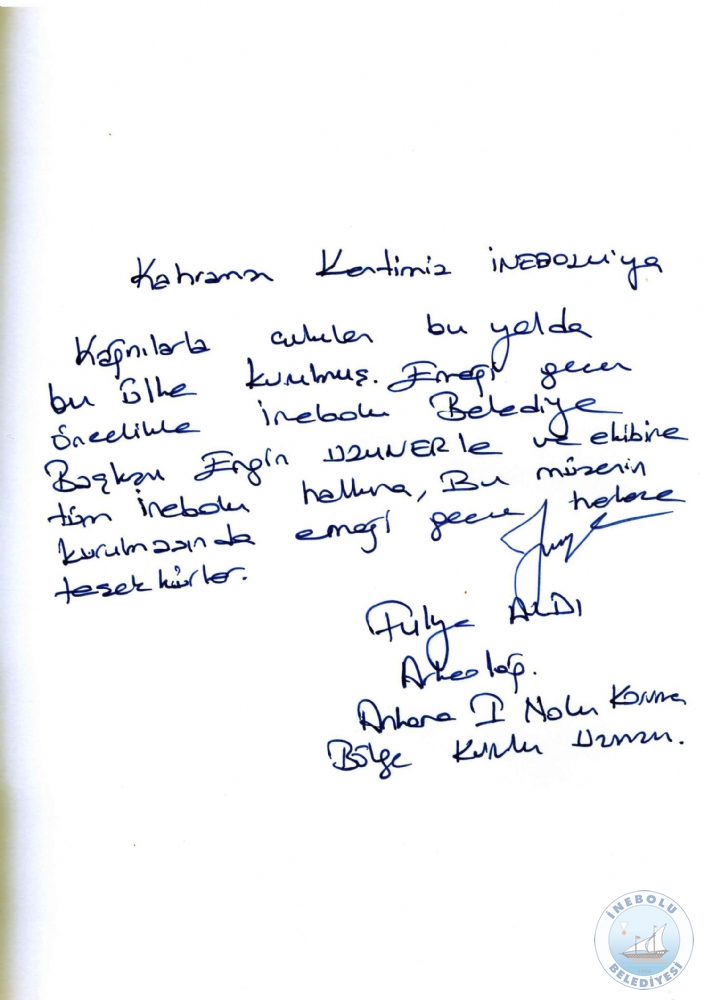 Kahraman Kentimiz İNEBOLU'ya
Kağnılarla bu yolda
bu ülke kurulmuş. Emeği geçen
öncelikle İnebolu Belediye
Başkanı Engin UZUNER'le ve ekibine
tüm İnebolu halkına, Bu müzenin
kurulmasında emeği geçen herkese
teşekkürler.
Fulya ALDI
Arkeolog.
Ankara I Nolu Koruma
Bölge Kurulu Uzmanı.
İNEBOLU
BELEDİYESİ